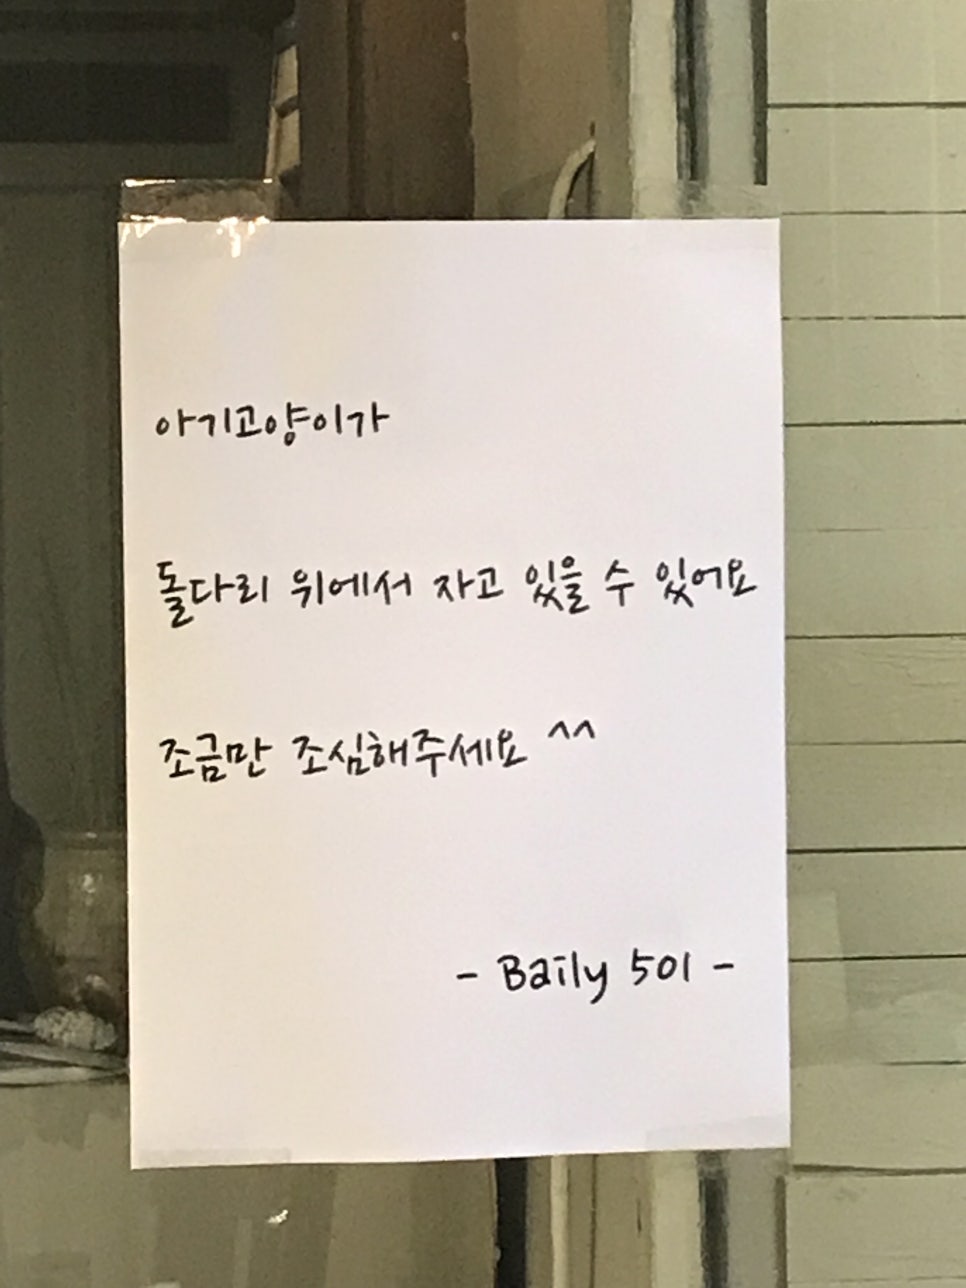 아기고양이가
돌다리 위에서 자고 있을 수 있어요
조금만 조심해주세요 ^^
- Baily 501 -